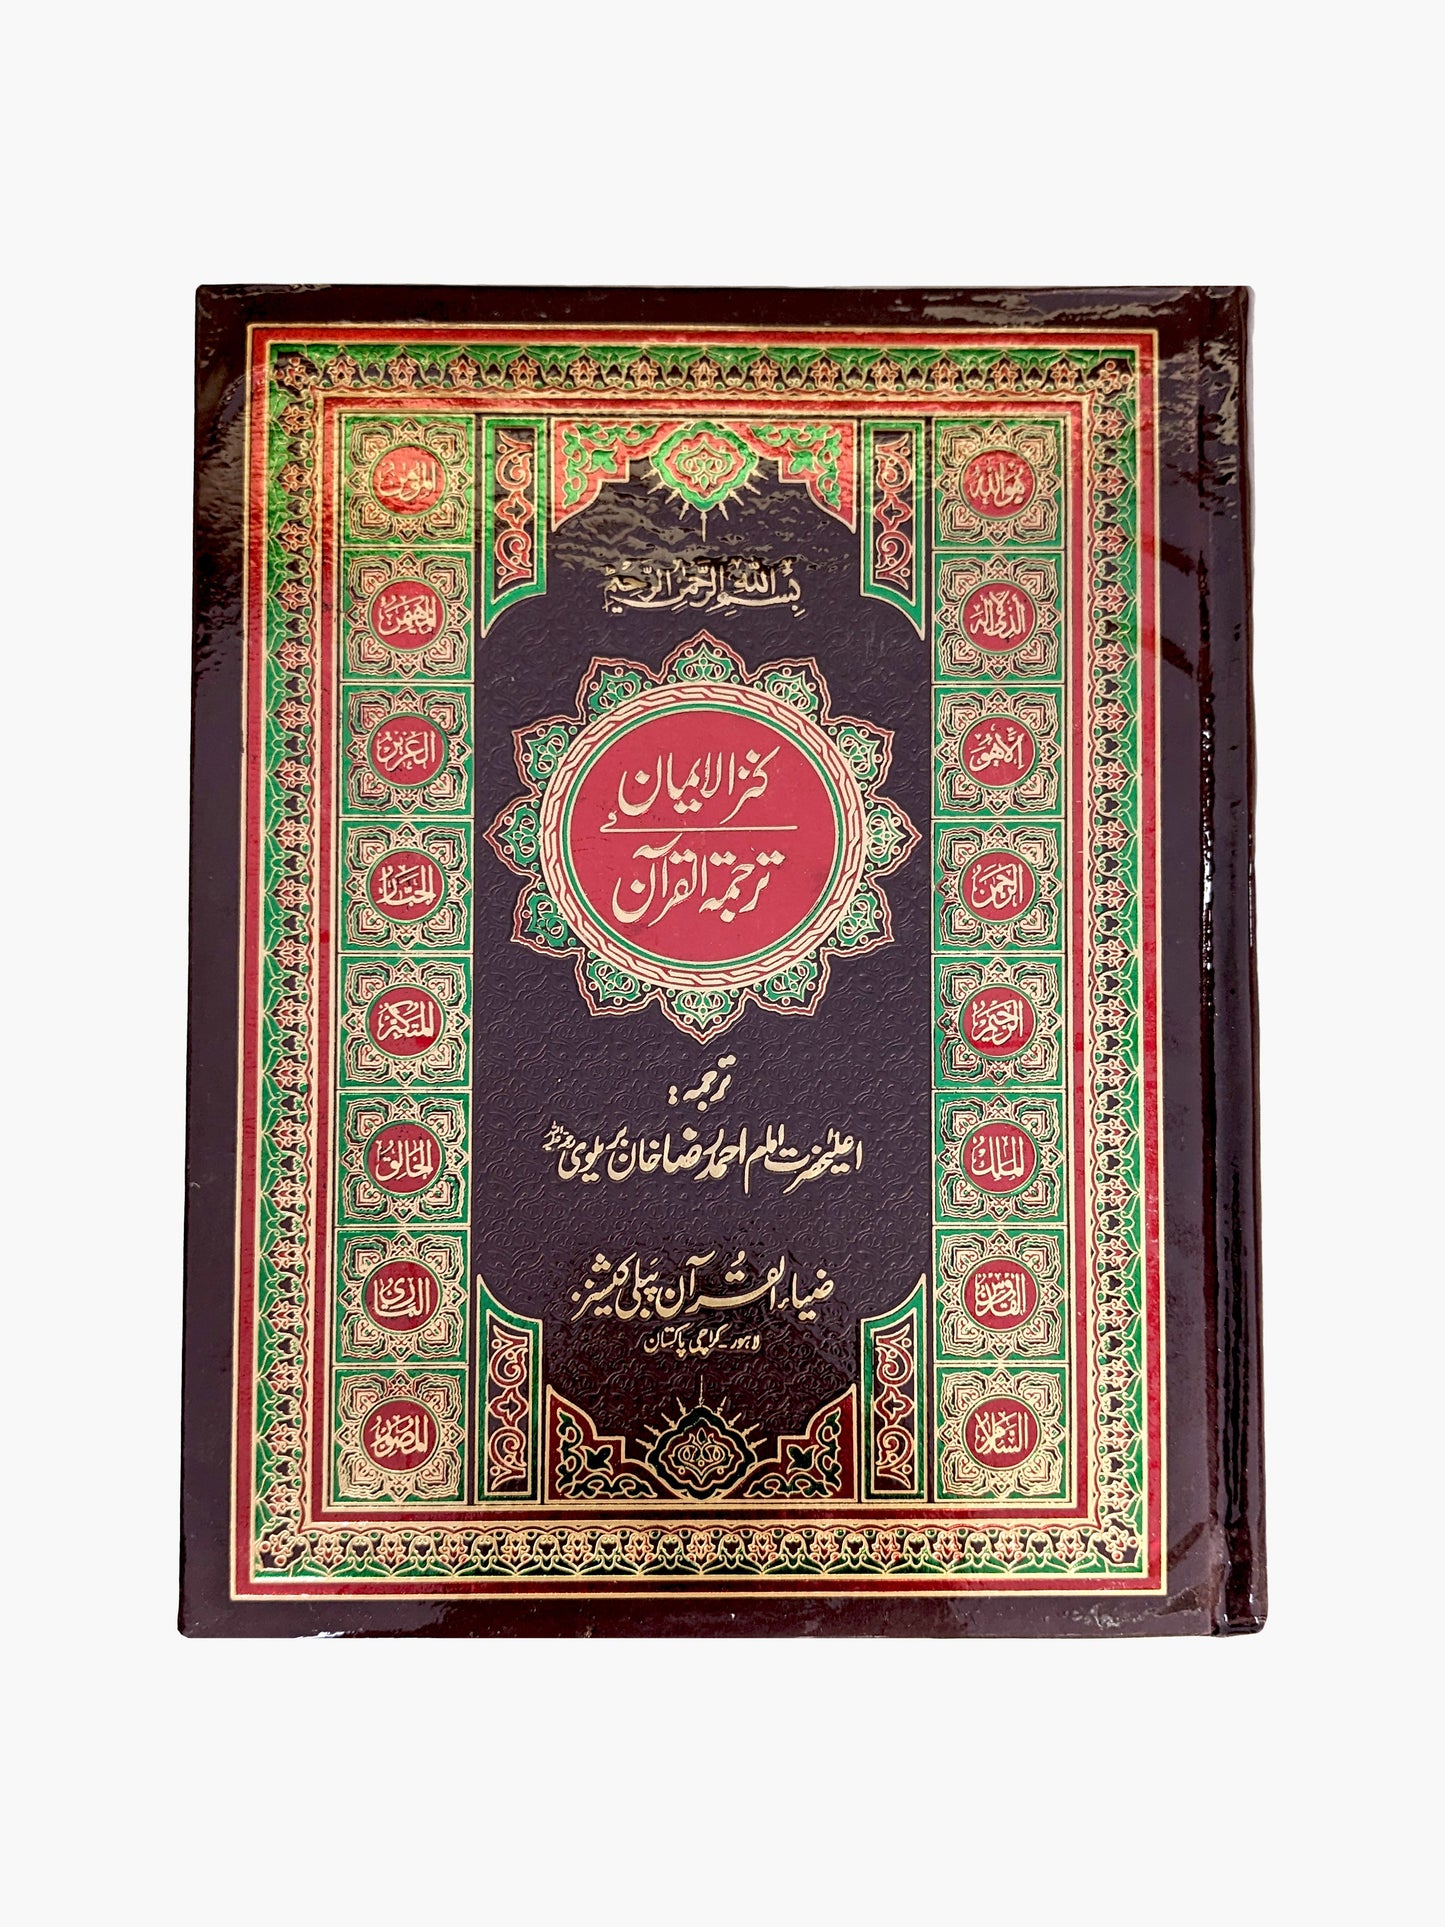 بِسْمِ اللهِ الرَّحْمٰنِ الرَّحِيْمِ
کنز الایمان
فی
ترجمۃ القرآن
ترجمہ:
اعلیٰحضرت امام احمد رضا خان بریلوی
ضیاء القرآن پبلی کیشنز
لاہور ۔ کراچی پاکستان
هو الله
الذي لا اله
الا هو
الرحمن
الرحيم
الملك
القدوس
السلام
المؤمن
المهيمن
العزيز
الجبار
المتكبر
الخالق
البارئ
المصور